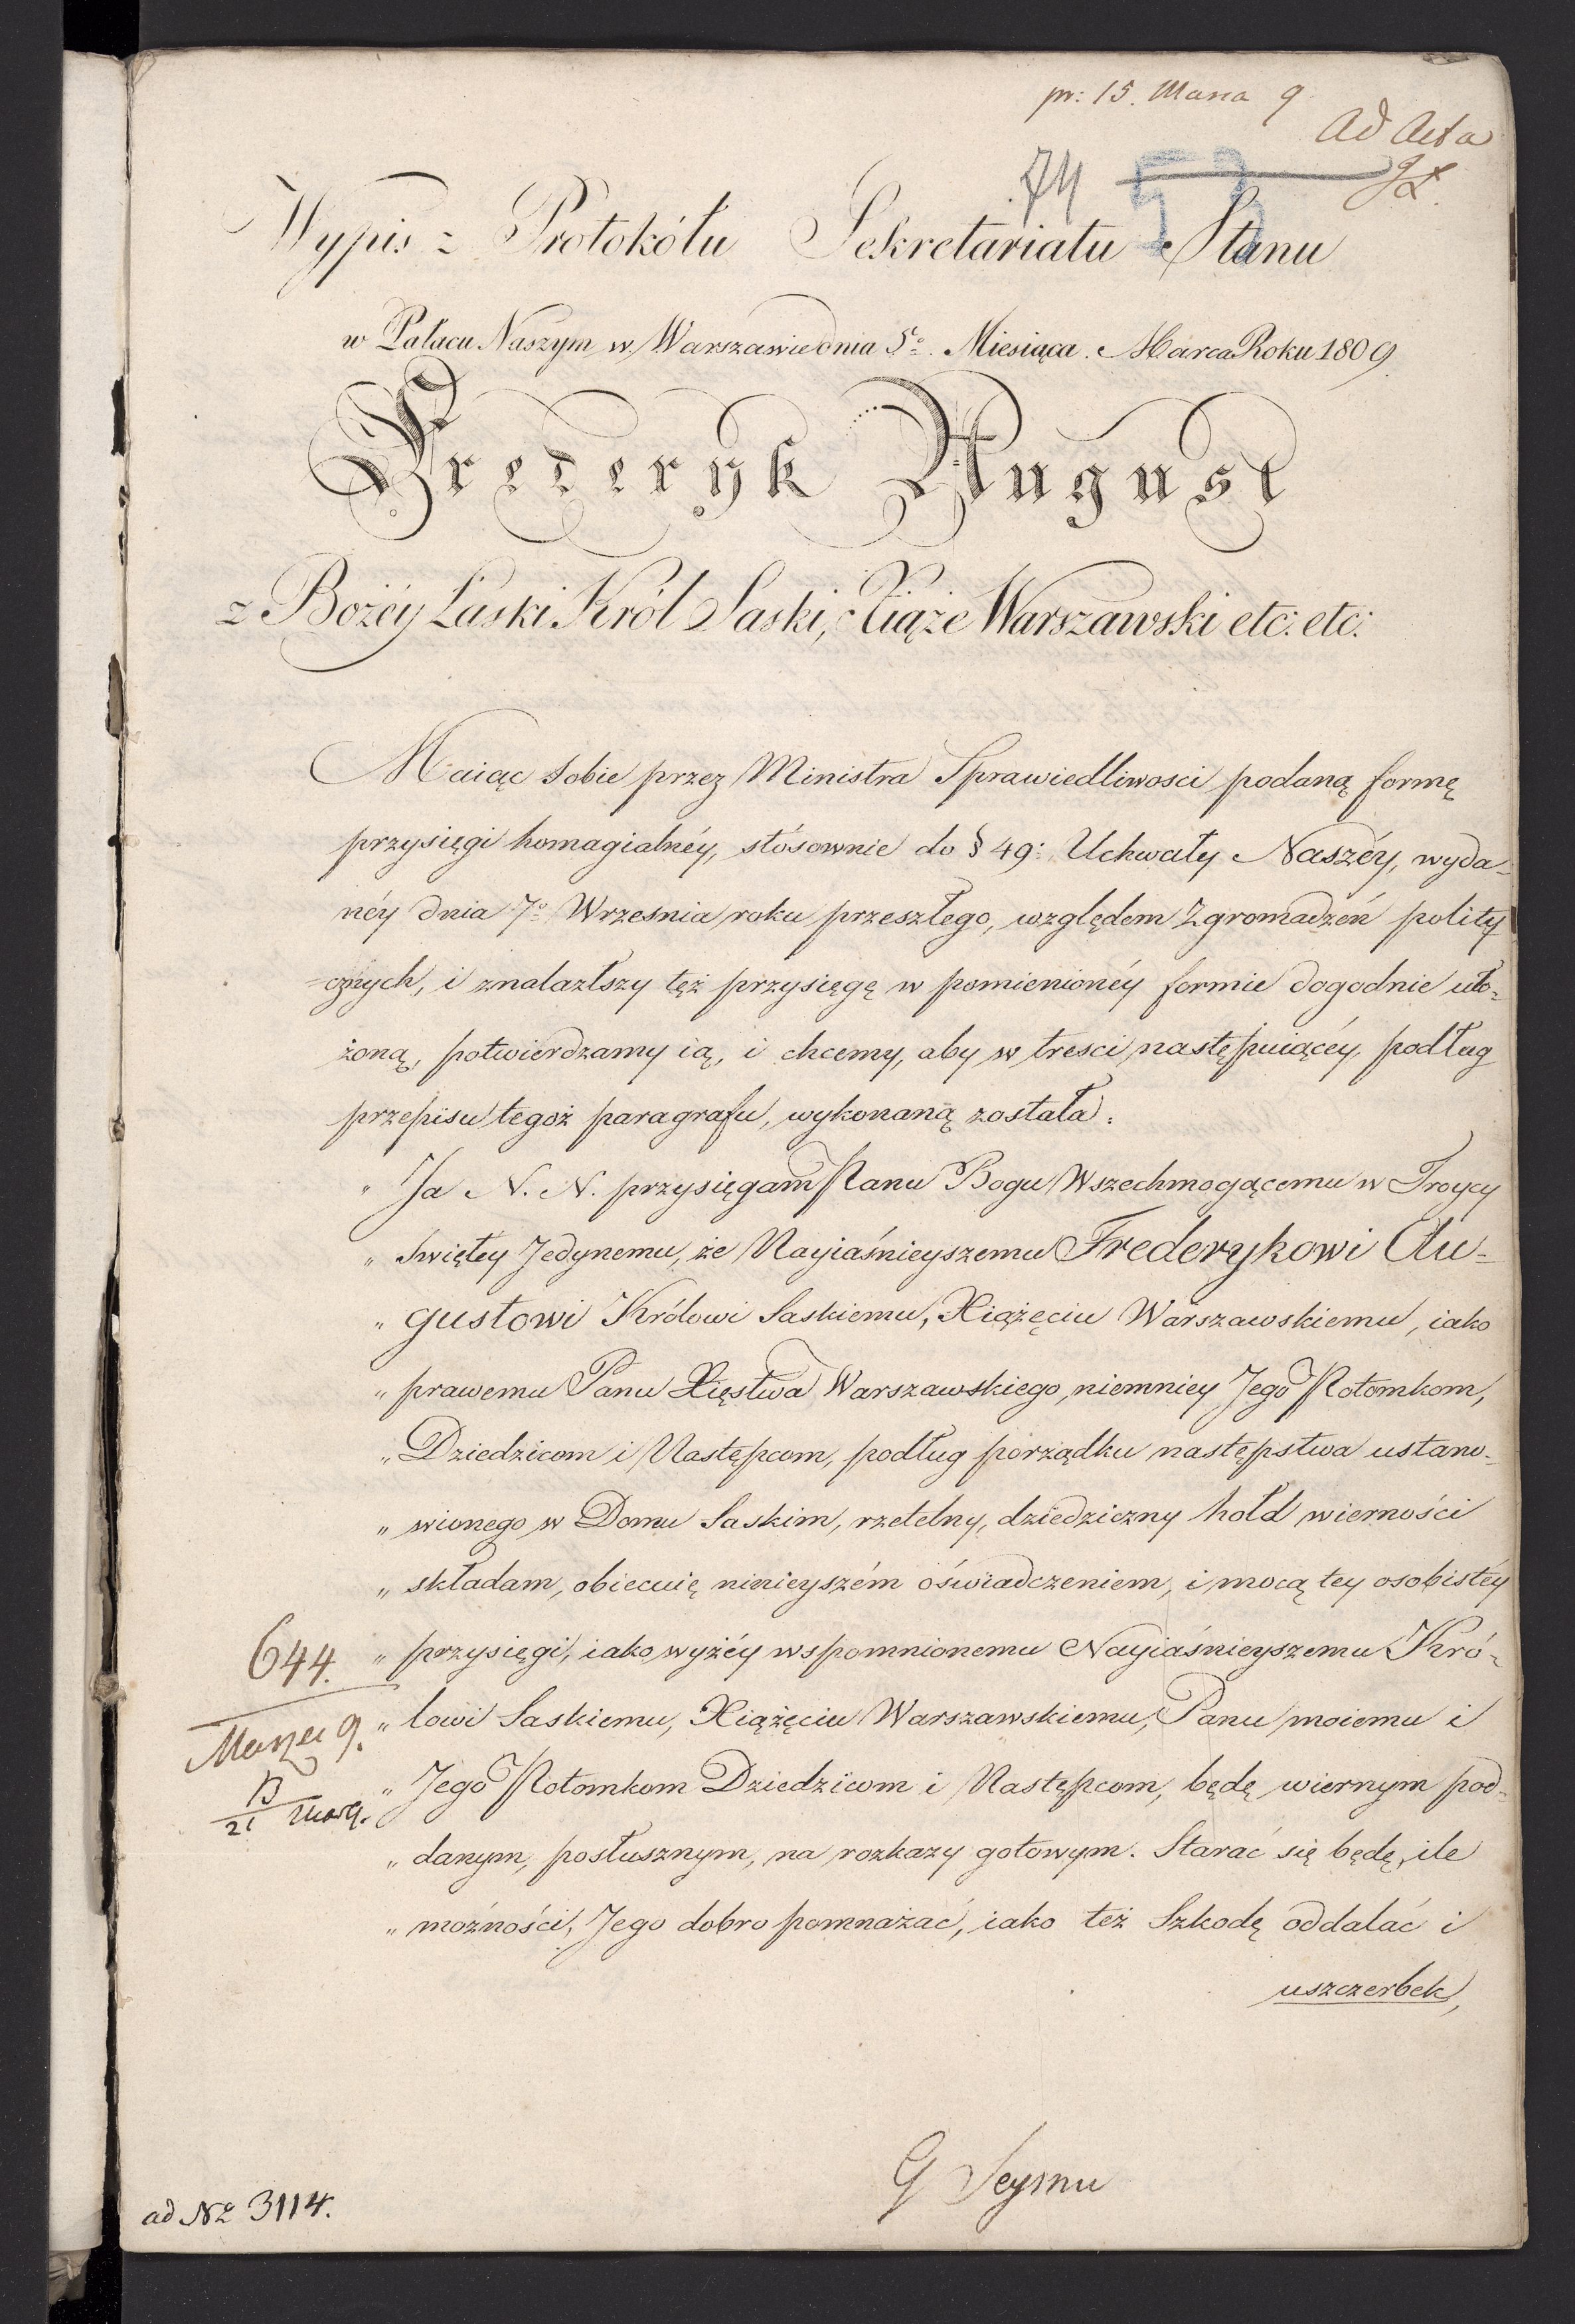 pr: 15. Marca 9
Ad Acta
74 53
Wypis z Protokółu Sekretariatu Stanu
w Pałacu Naszym w Warszawie dnia 5º Miesiąca Marca Roku 1809
Frederyk August
z Bożéy Łaski Król Saski, Xiąże Warszawski etc: etc:
Maiąc sobie przez Ministra Sprawiedliwosci podaną formę
przysięgi homagialnéy, stósownie do § 49: Uchwały Naszéy, wyda-
néy dnia 7º Wrzesnia roku przeszłego, względem Zgromadzeń polity
=cznych, i znalazłszy tęż przysięgę w pomienionéy formie dogodnie uło=
żoną, potwierdzamy ią, i chcemy, aby w tresci następuiącéy, podług
przepisu tegoż paragrafu, wykonaną została:
" Ja N. N. przysięgam Panu Bogu Wszechmogącemu w Troycy
" Swiętey Jedynemu, że Nayiaśnieyszemu Frederykowi Au=
" gustowi Królowi Saskiemu, Xiążęciu Warszawskiemu, iako
" prawemu Panu Xięstwa Warszawskiego, niemniey Jego Potomkom,
" Dziedzicom i Następcom, podług porządku następstwa ustano=
" wionego w Domu Saskim, rzetelny, dziedziczny hołd wierności
" składam, obiecuię ninieyszém oświadczeniem, i mocą tey osobistéy
644. " przysięgi, iako wyżéy wspomnionemu Nayiaśnieyszemu Kró=
" lowi Saskiemu, Xiążęciu Warszawskiemu, Panu moiemu i
" Jego Potomkom Dziedzicom i Następcom, będę wiernym pod=
" danym, posłusznym, na rozkazy gotowym. Starać się będę, ile
" możności, Jego dobro pomnażać, iako też Szkodę oddalać i
uszczerbek,
Seymu
ad Nº 3114.